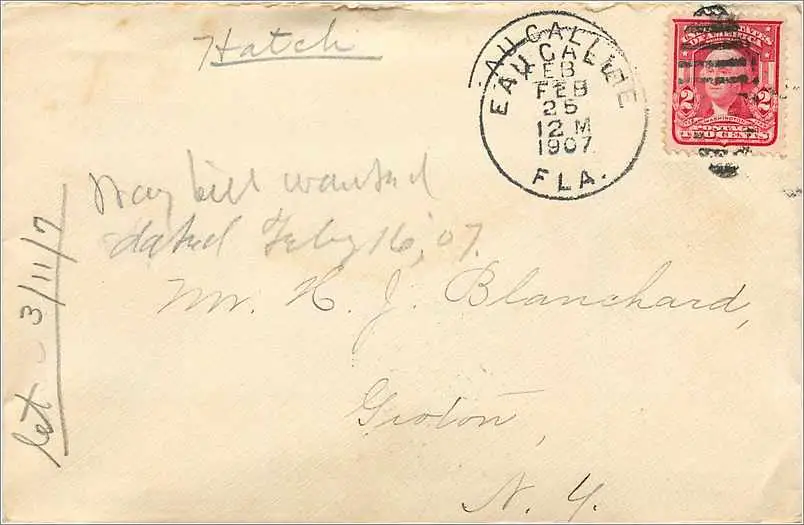 Hatch
EAU GALLIE
FEB
FEB
25
12 M
1907
FLA.
2 2
Way bill wanted
dated Feby 16, '07.
Mr. H. J. Blanchard,
Groton,
N. Y.
let 3/11/7